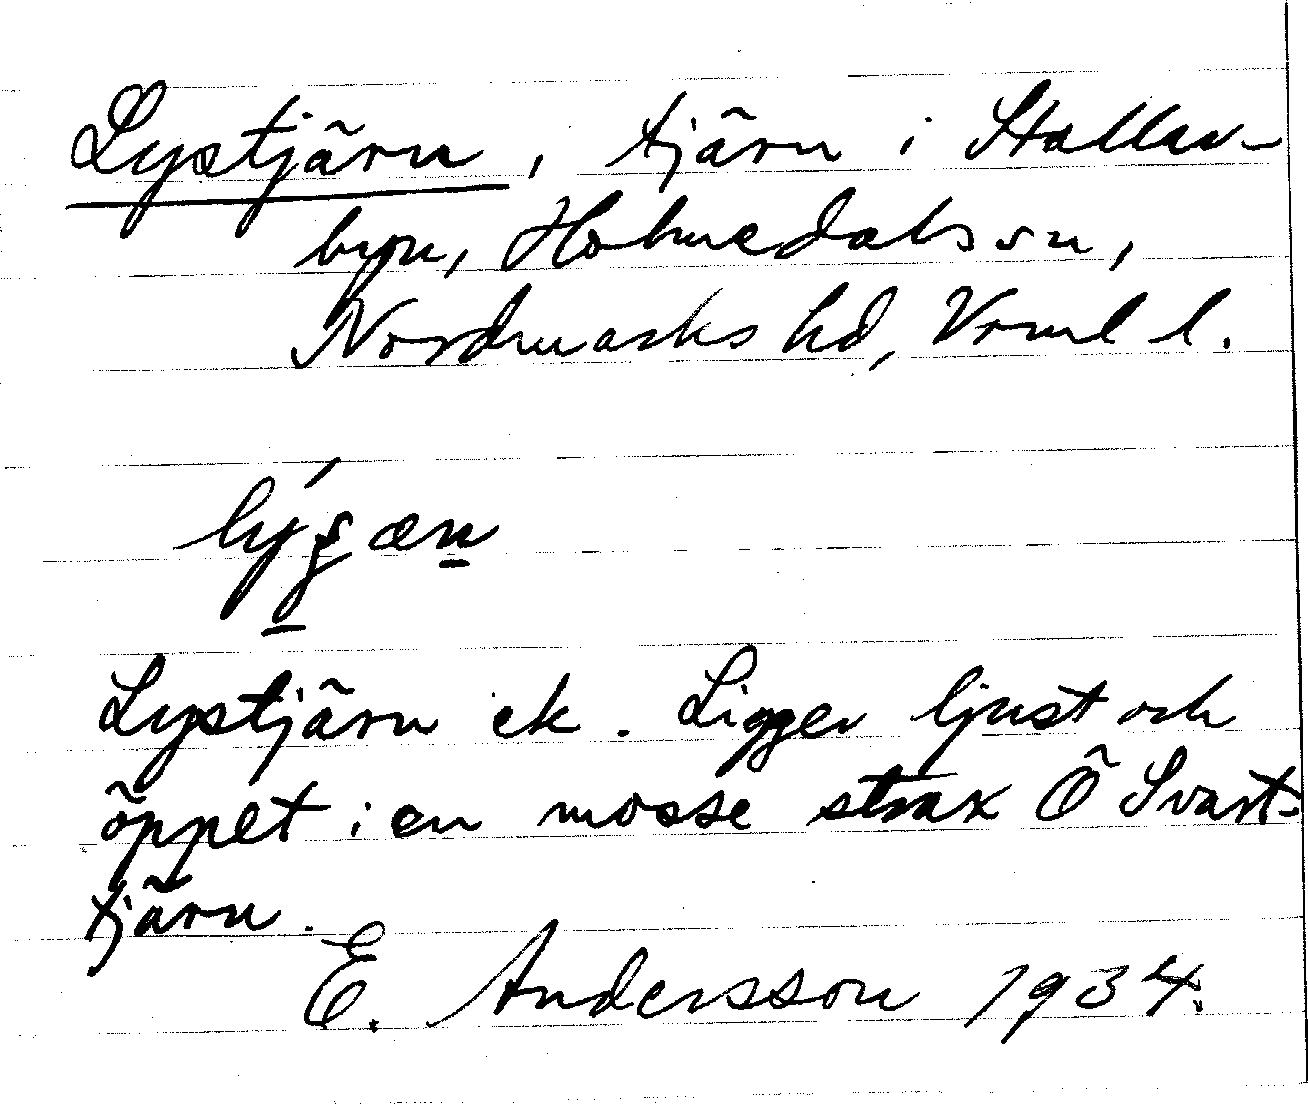 Lystjärn, tjärn i Stallar-
byn, Holmedals sn,
Nordmarks hd, Vrml l.
Lystjärn ek. Ligger ljust och
öppet i en mosse strax Ö Svart-
tjärn.
E. Andersson 1934.